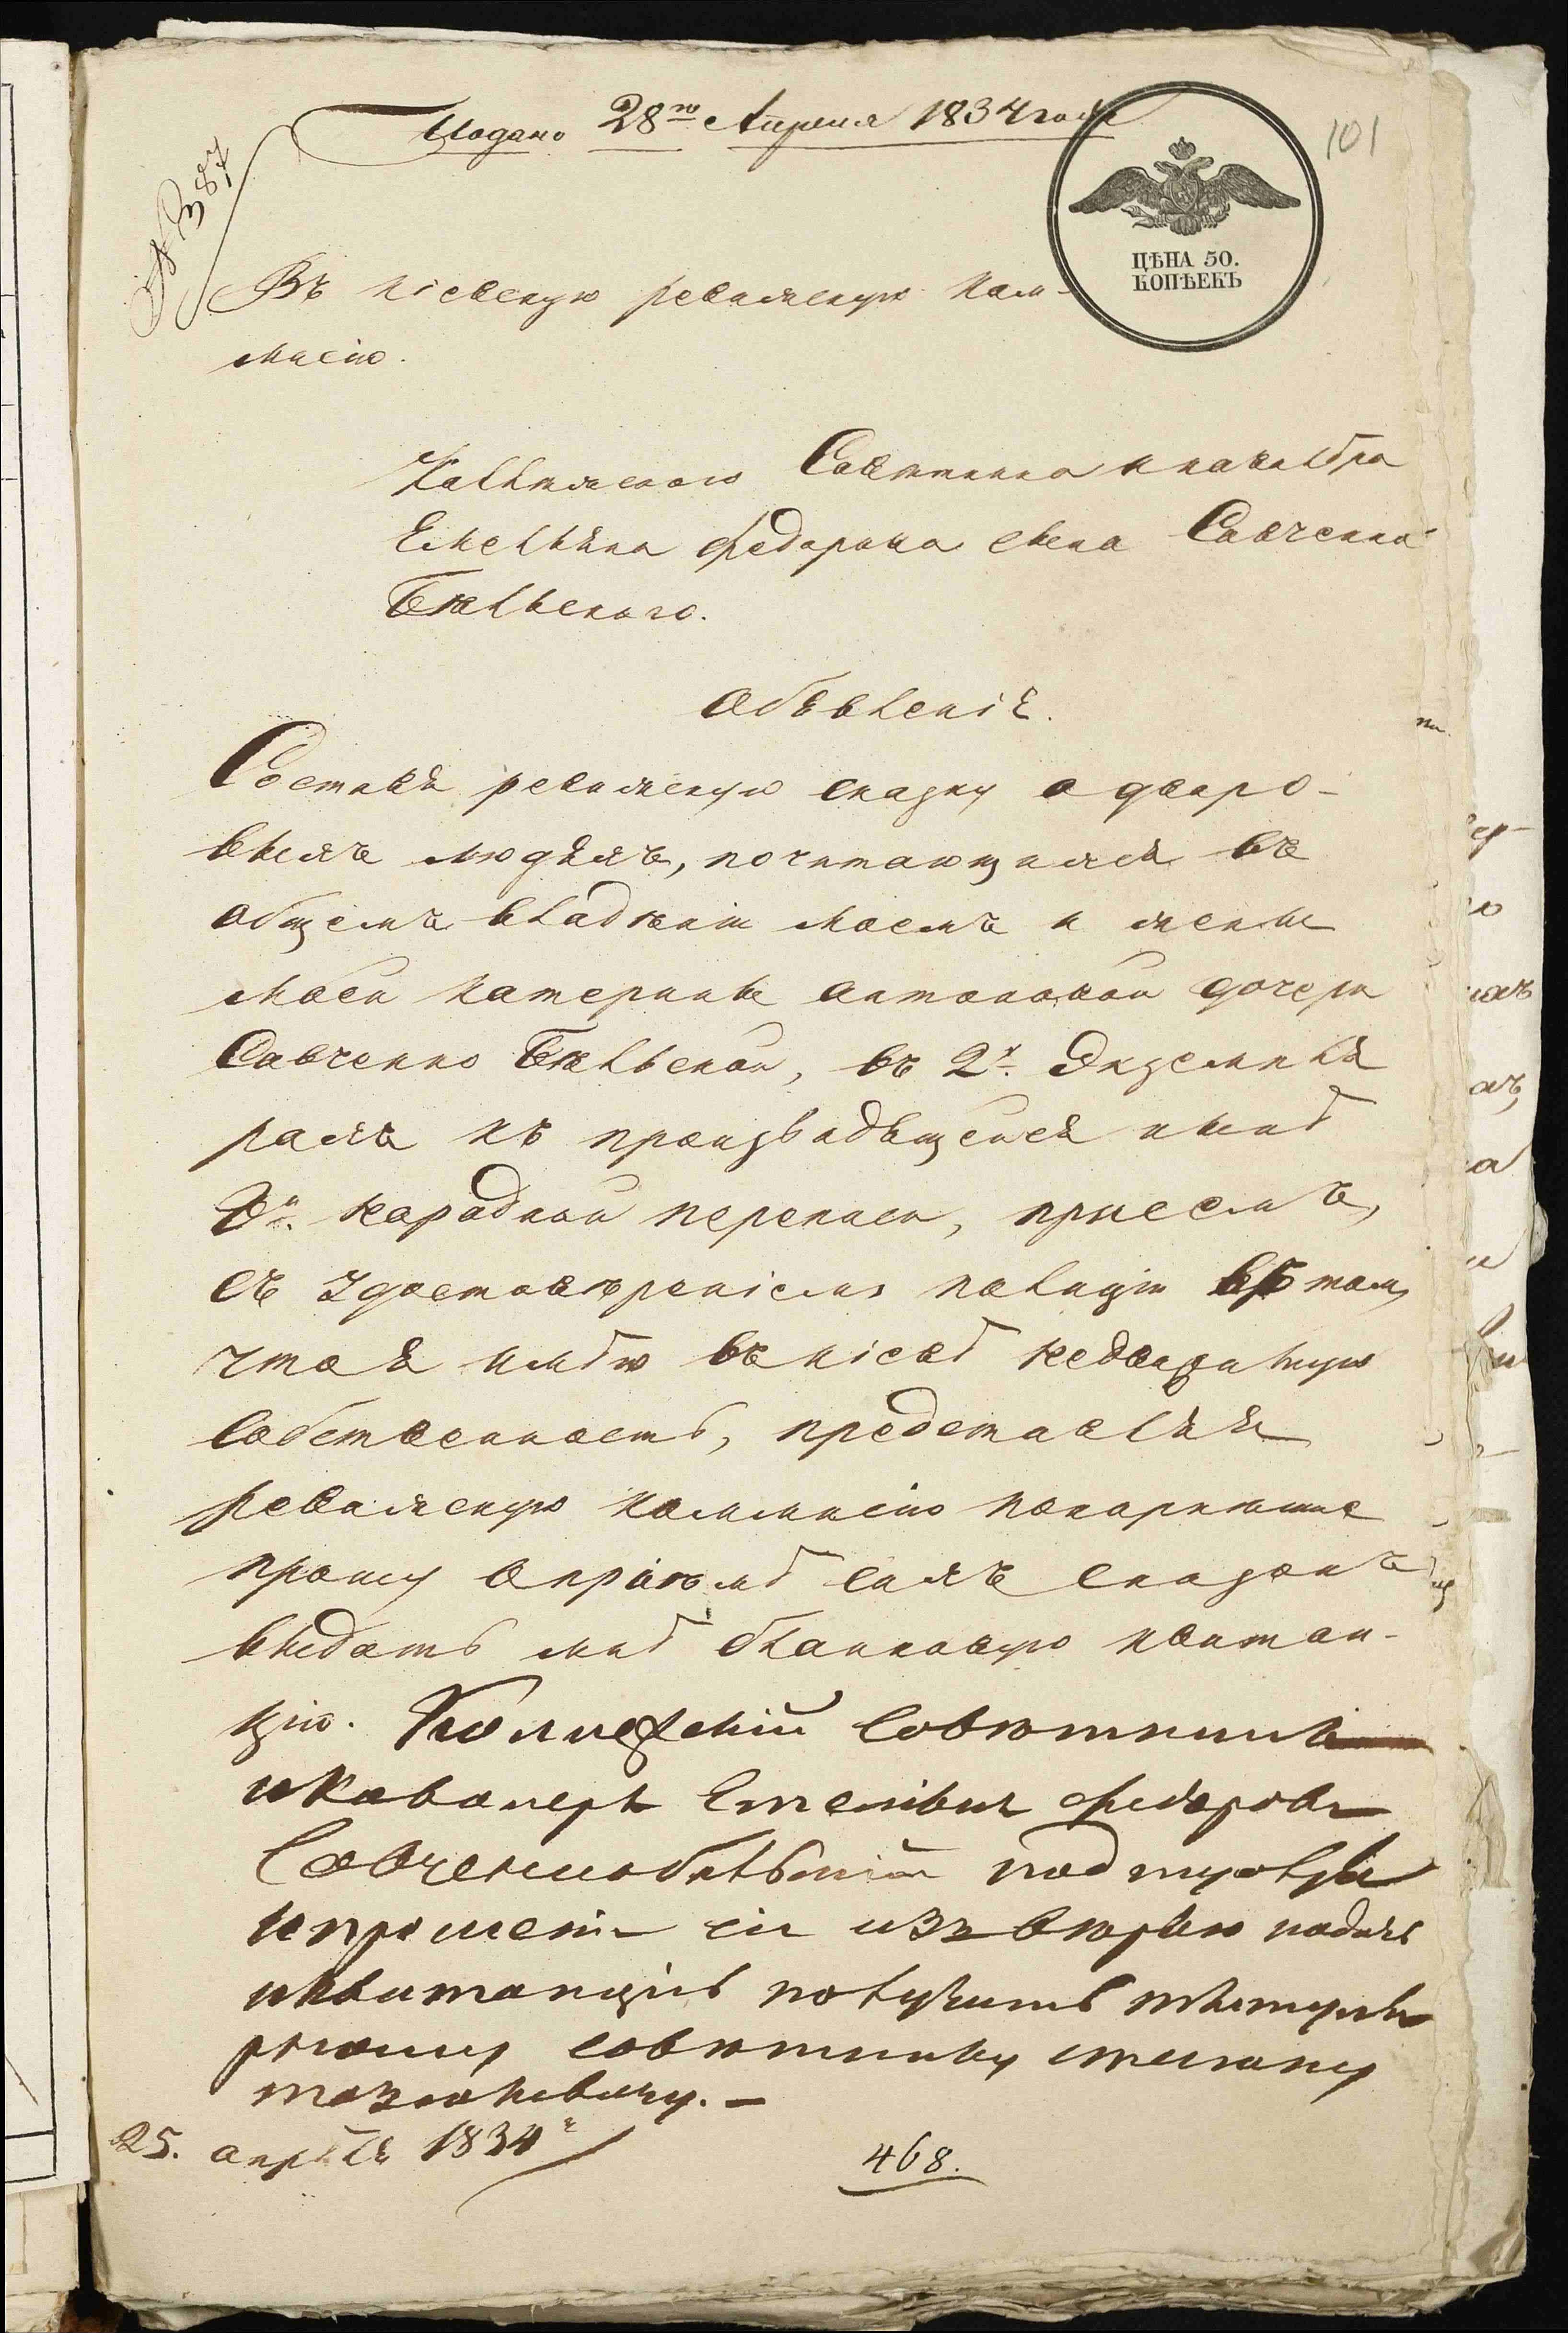 Подано 28го Апреля 1834 года
101
№ 387
ЦѢНА 50.
КОПѢЕКЪ
Въ кіевскую ревижскую ком-
мисію.
Колѣжскаго Советника и кавалѣра
Емельяна Федорова сына Савченка
Бѣльского.
Объявленіѣ.
Составя ревижскую сказку о дваро-
выхъ людяхъ, почитающихся въ
общемъ владѣніи моемъ и жены
моей Катерины Антоновой дочери
Савченко Бѣльской, въ 2х. Экземпля
рахъ къ произвадящейся нынѣ
8й. народной переписи, присемъ,
съ удостовѣреніемъ полиціи въ том,
что я имѣю въ кіевѣ недвижимую
собственность, представляя
ревижскую коммисію покорнейше
прошу о пріемѣ сихъ сказокъ
выдать мнѣ бланковую квитан-
цію. Колежскій Советникъ
и Кавалеръ Емельянъ Федоровъ
Савченкобѣльскій
и прошеніе сіе подать
и квитанцію получить титуляр
рному советнику
25. апрѣля 1834г
468.